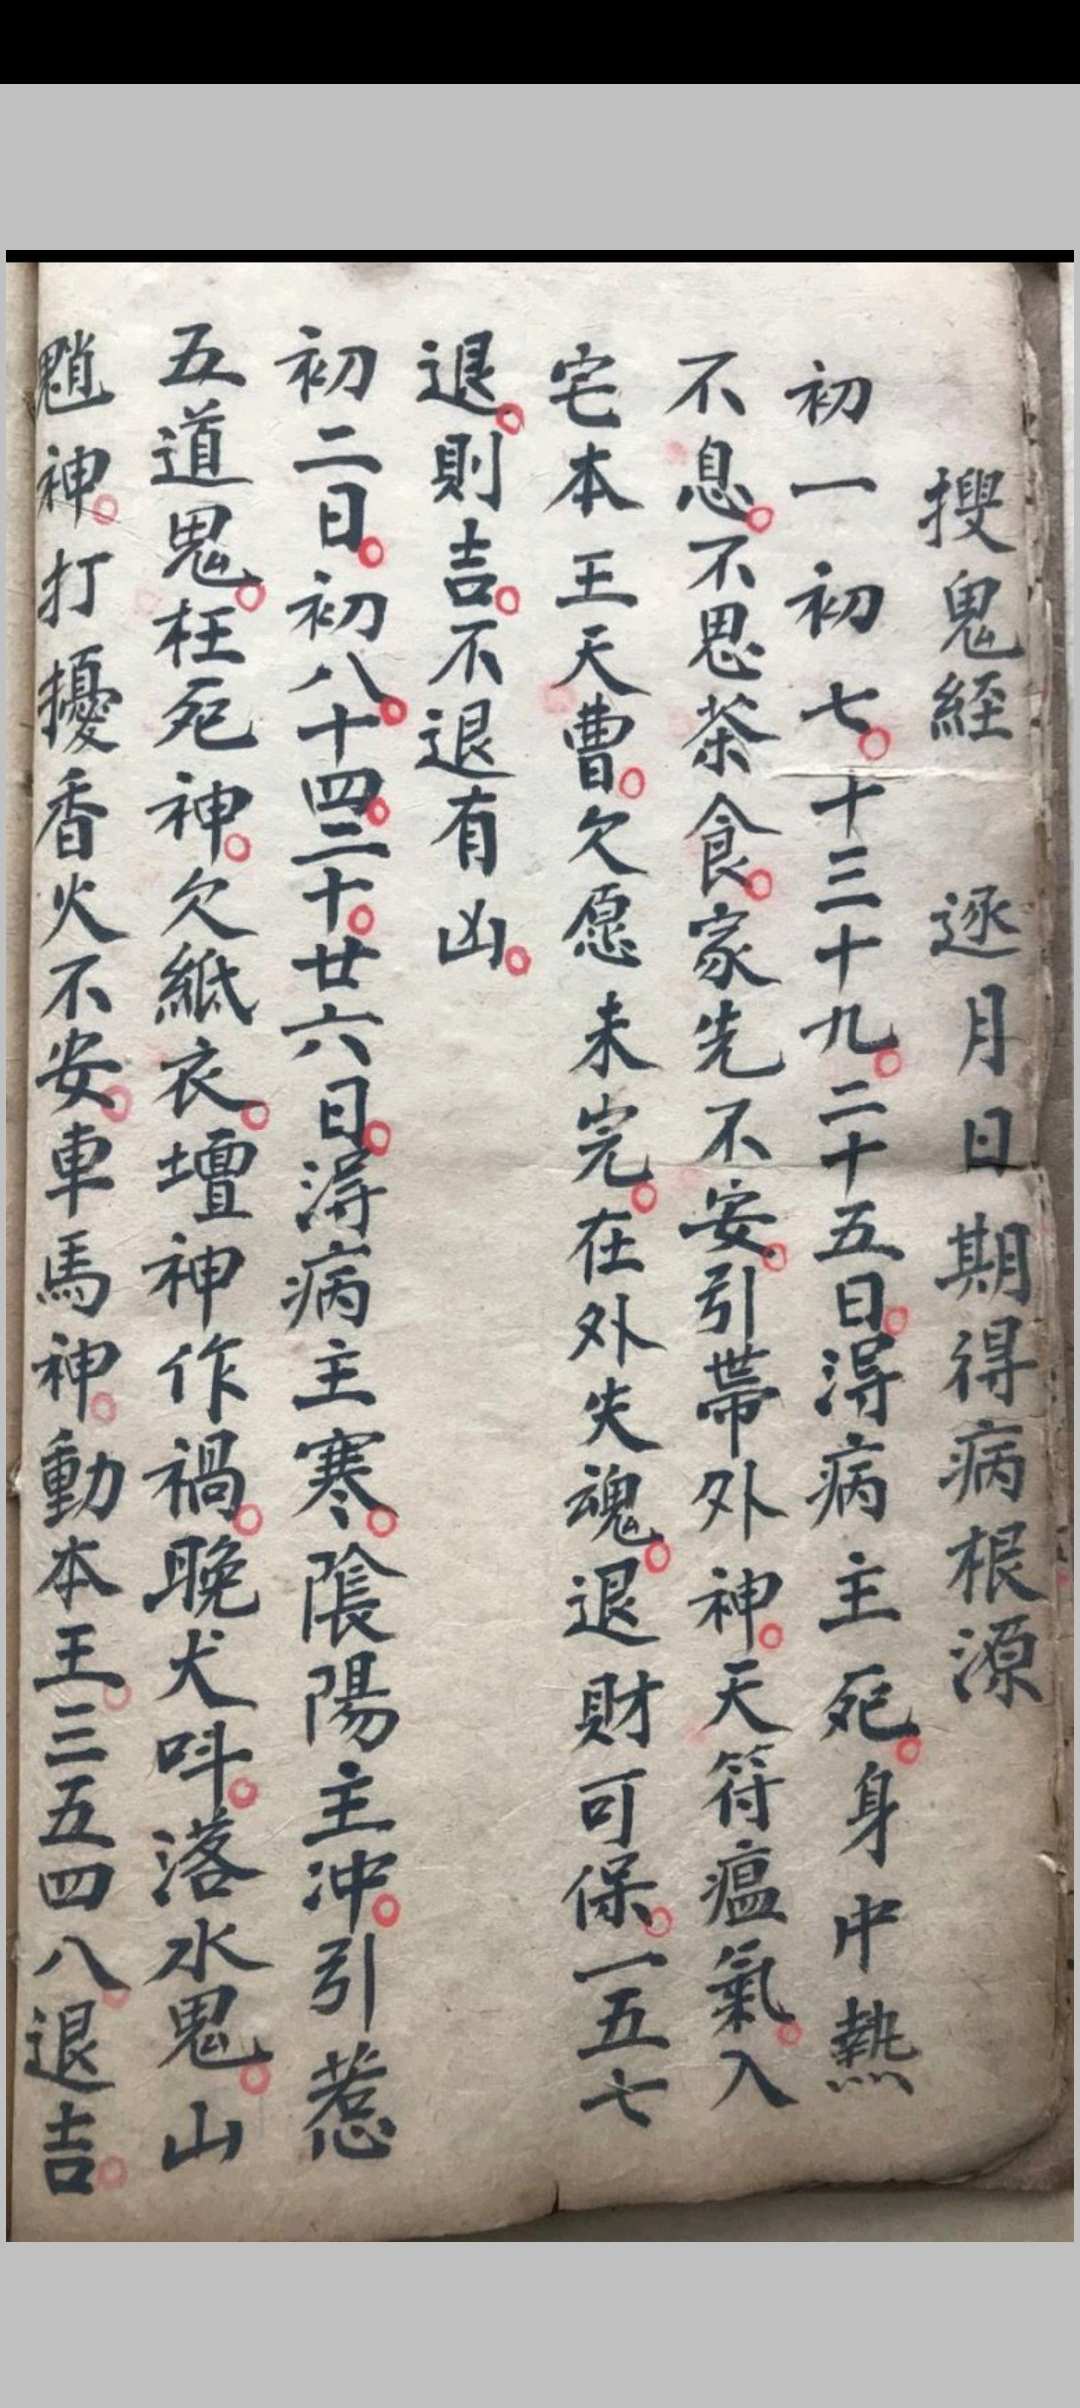 搜鬼經 逐月日期得病根源
初一初七。十三十九。二十五日。淂病主死。身中熱
不息。不思茶食。家先不安。引帶外神。天符瘟氣。入
宅本王天曹。欠愿未完。在外失魂。退財可保。一五七
退。則吉。不退有凶。
初二日。初八。十四。二十。廿六日。淂病主寒。陰陽主冲。引惹
五道鬼。枉死神。欠紙衣。壇神作禍。晚犬呌。落水鬼。山
魈神。打擾香火不安。車馬神。動本王。三五四八。退吉。